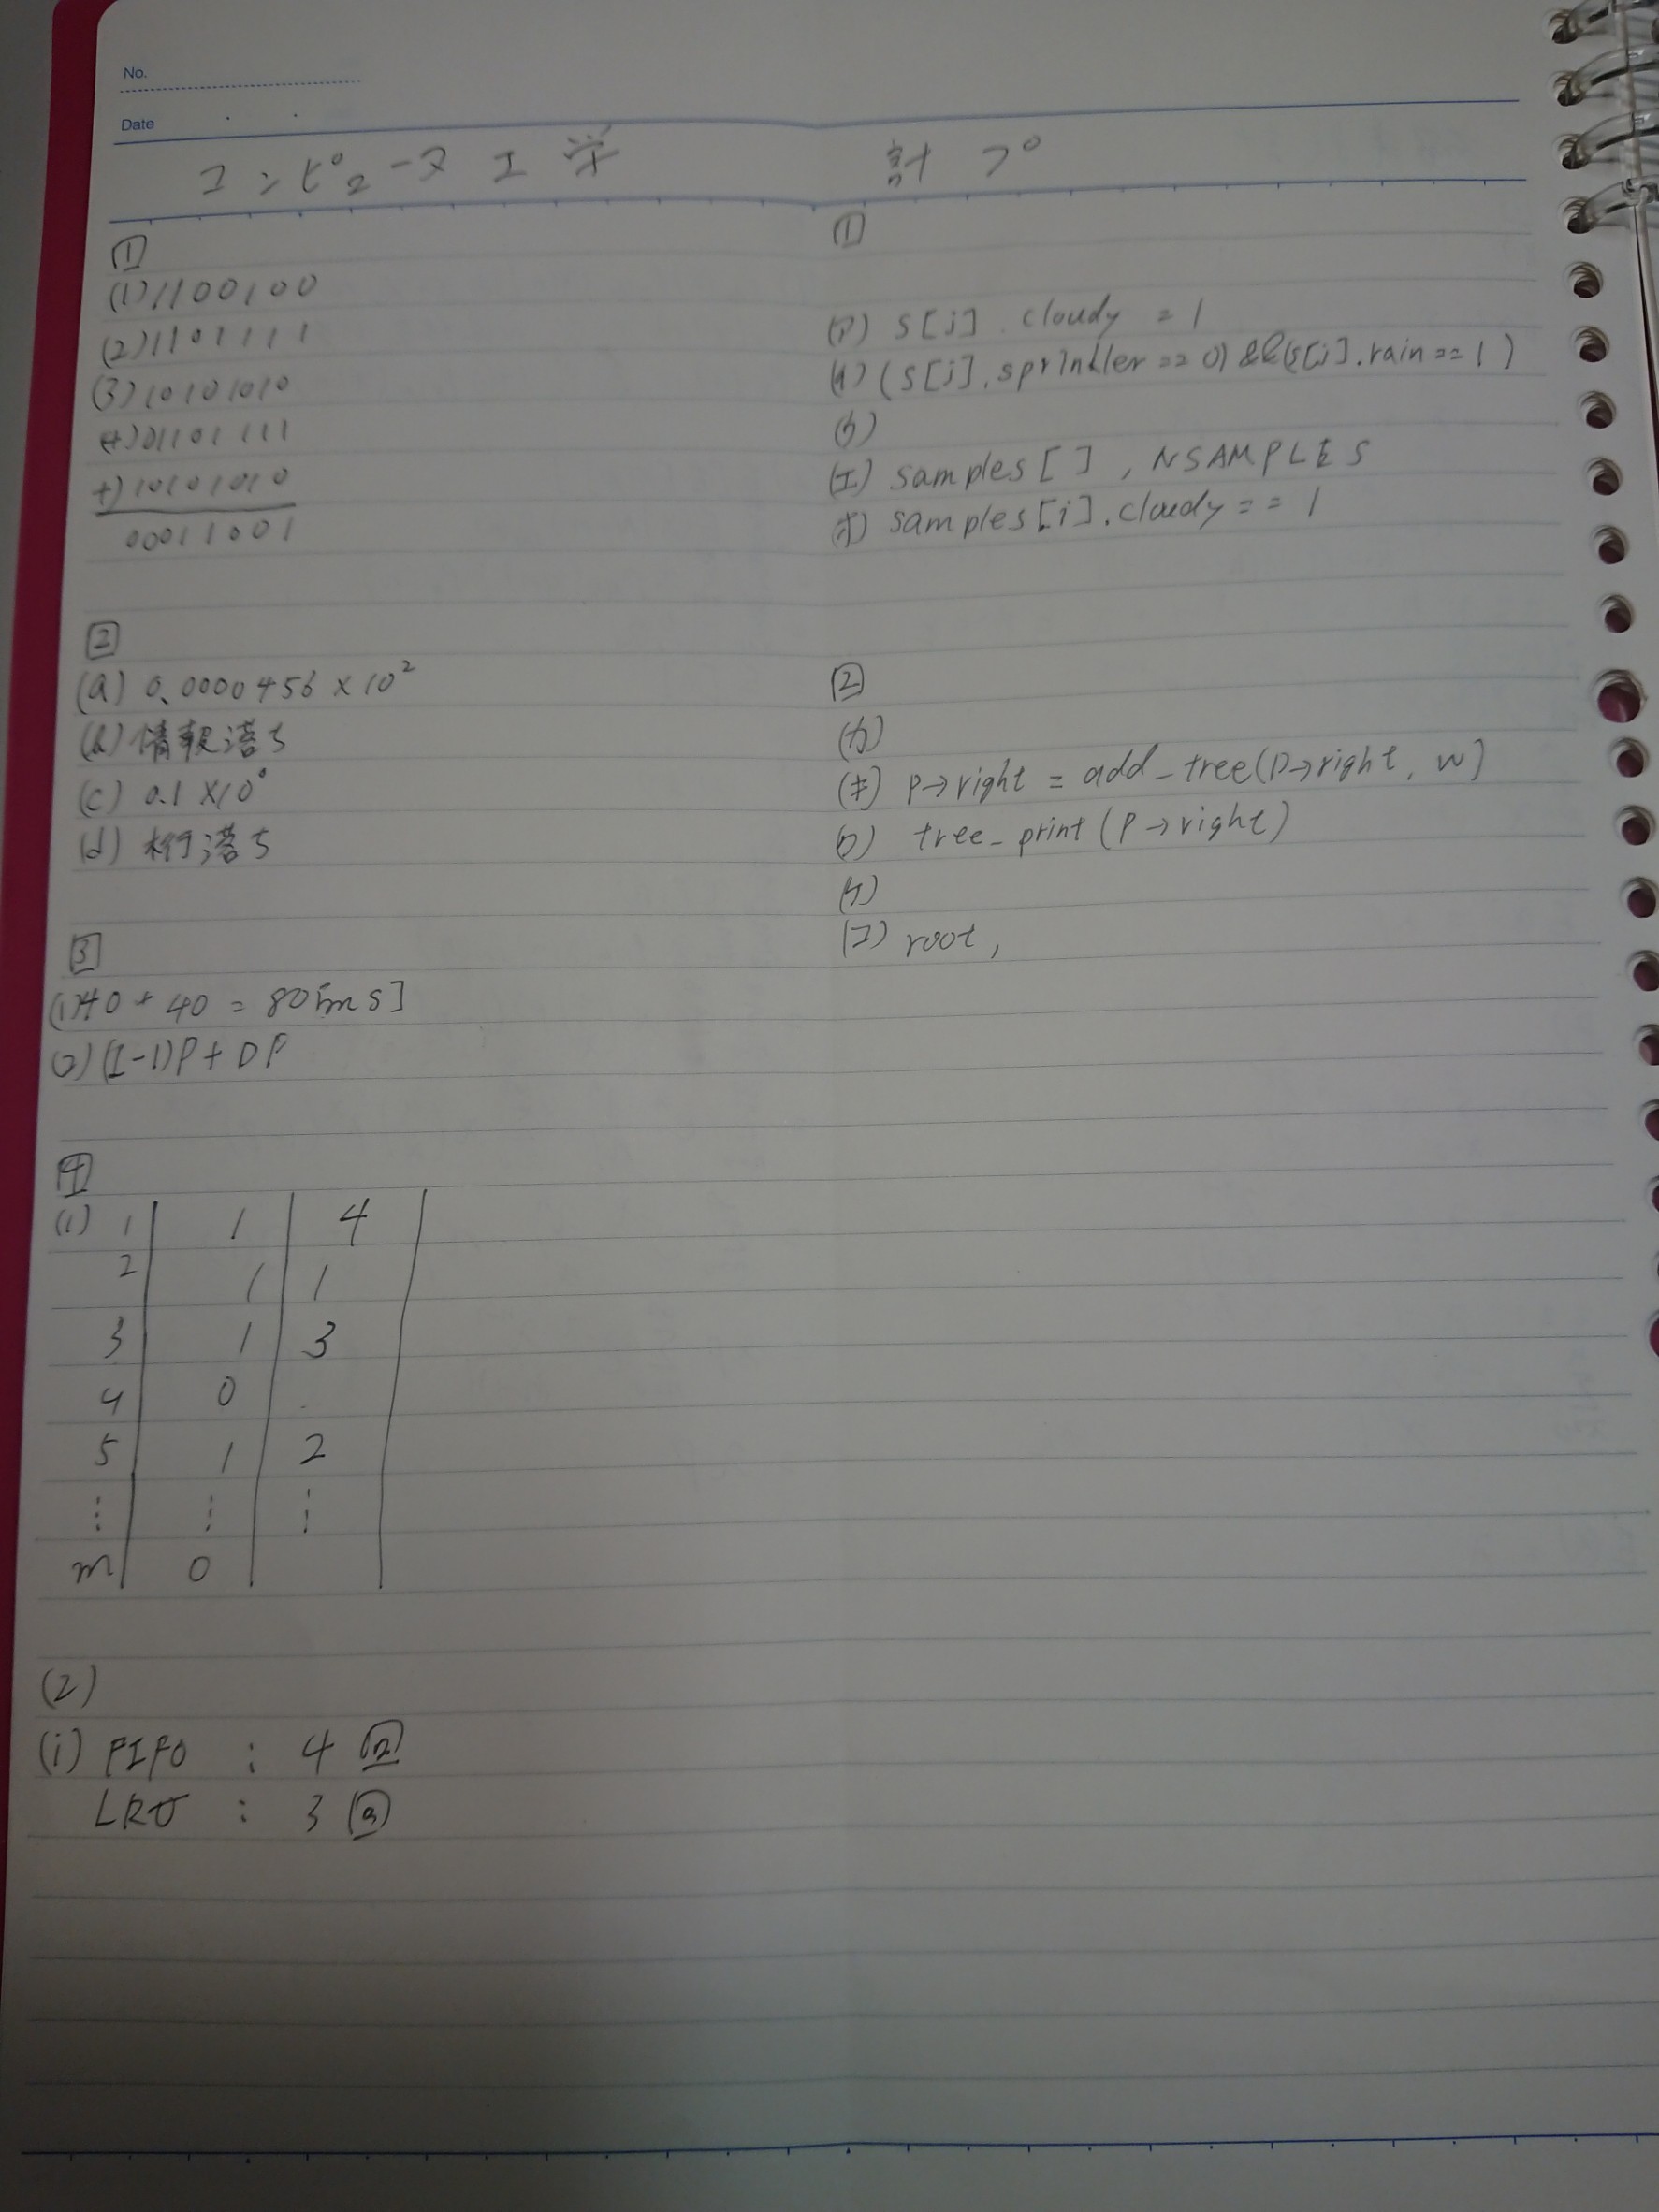 No.
Date
コンピュータ工学
1
(1) 1100100
(2) 1101111
(3) 10101010
(4) 01101111
+) 10101010
00011001
2
(a) 0.0000456×10²
(b) 情報落ち
(c) 0.1×10⁰
(d) 桁落ち
3
(1) 40+40=80[ms]
(2) (I-1)P+DP
4
(1) 1 1 4
2 1 1
3 1 3
4 0
5 1 2
⋮ ⋮ ⋮
m 0
(2)
(i) FIFO : 4回
LRU : 3回
計プ
1
(ア) s[j].cloudy = 1
(イ) (s[j].sprinkler == 0) && (s[j].rain == 1)
(ウ)
(エ) samples[ ], NSAMPLES
(オ) samples[i].cloudy == 1
2
(カ)
(キ) p→right = add_tree(p→right, w)
(ク) tree_print(p→right)
(ケ)
(コ) root,